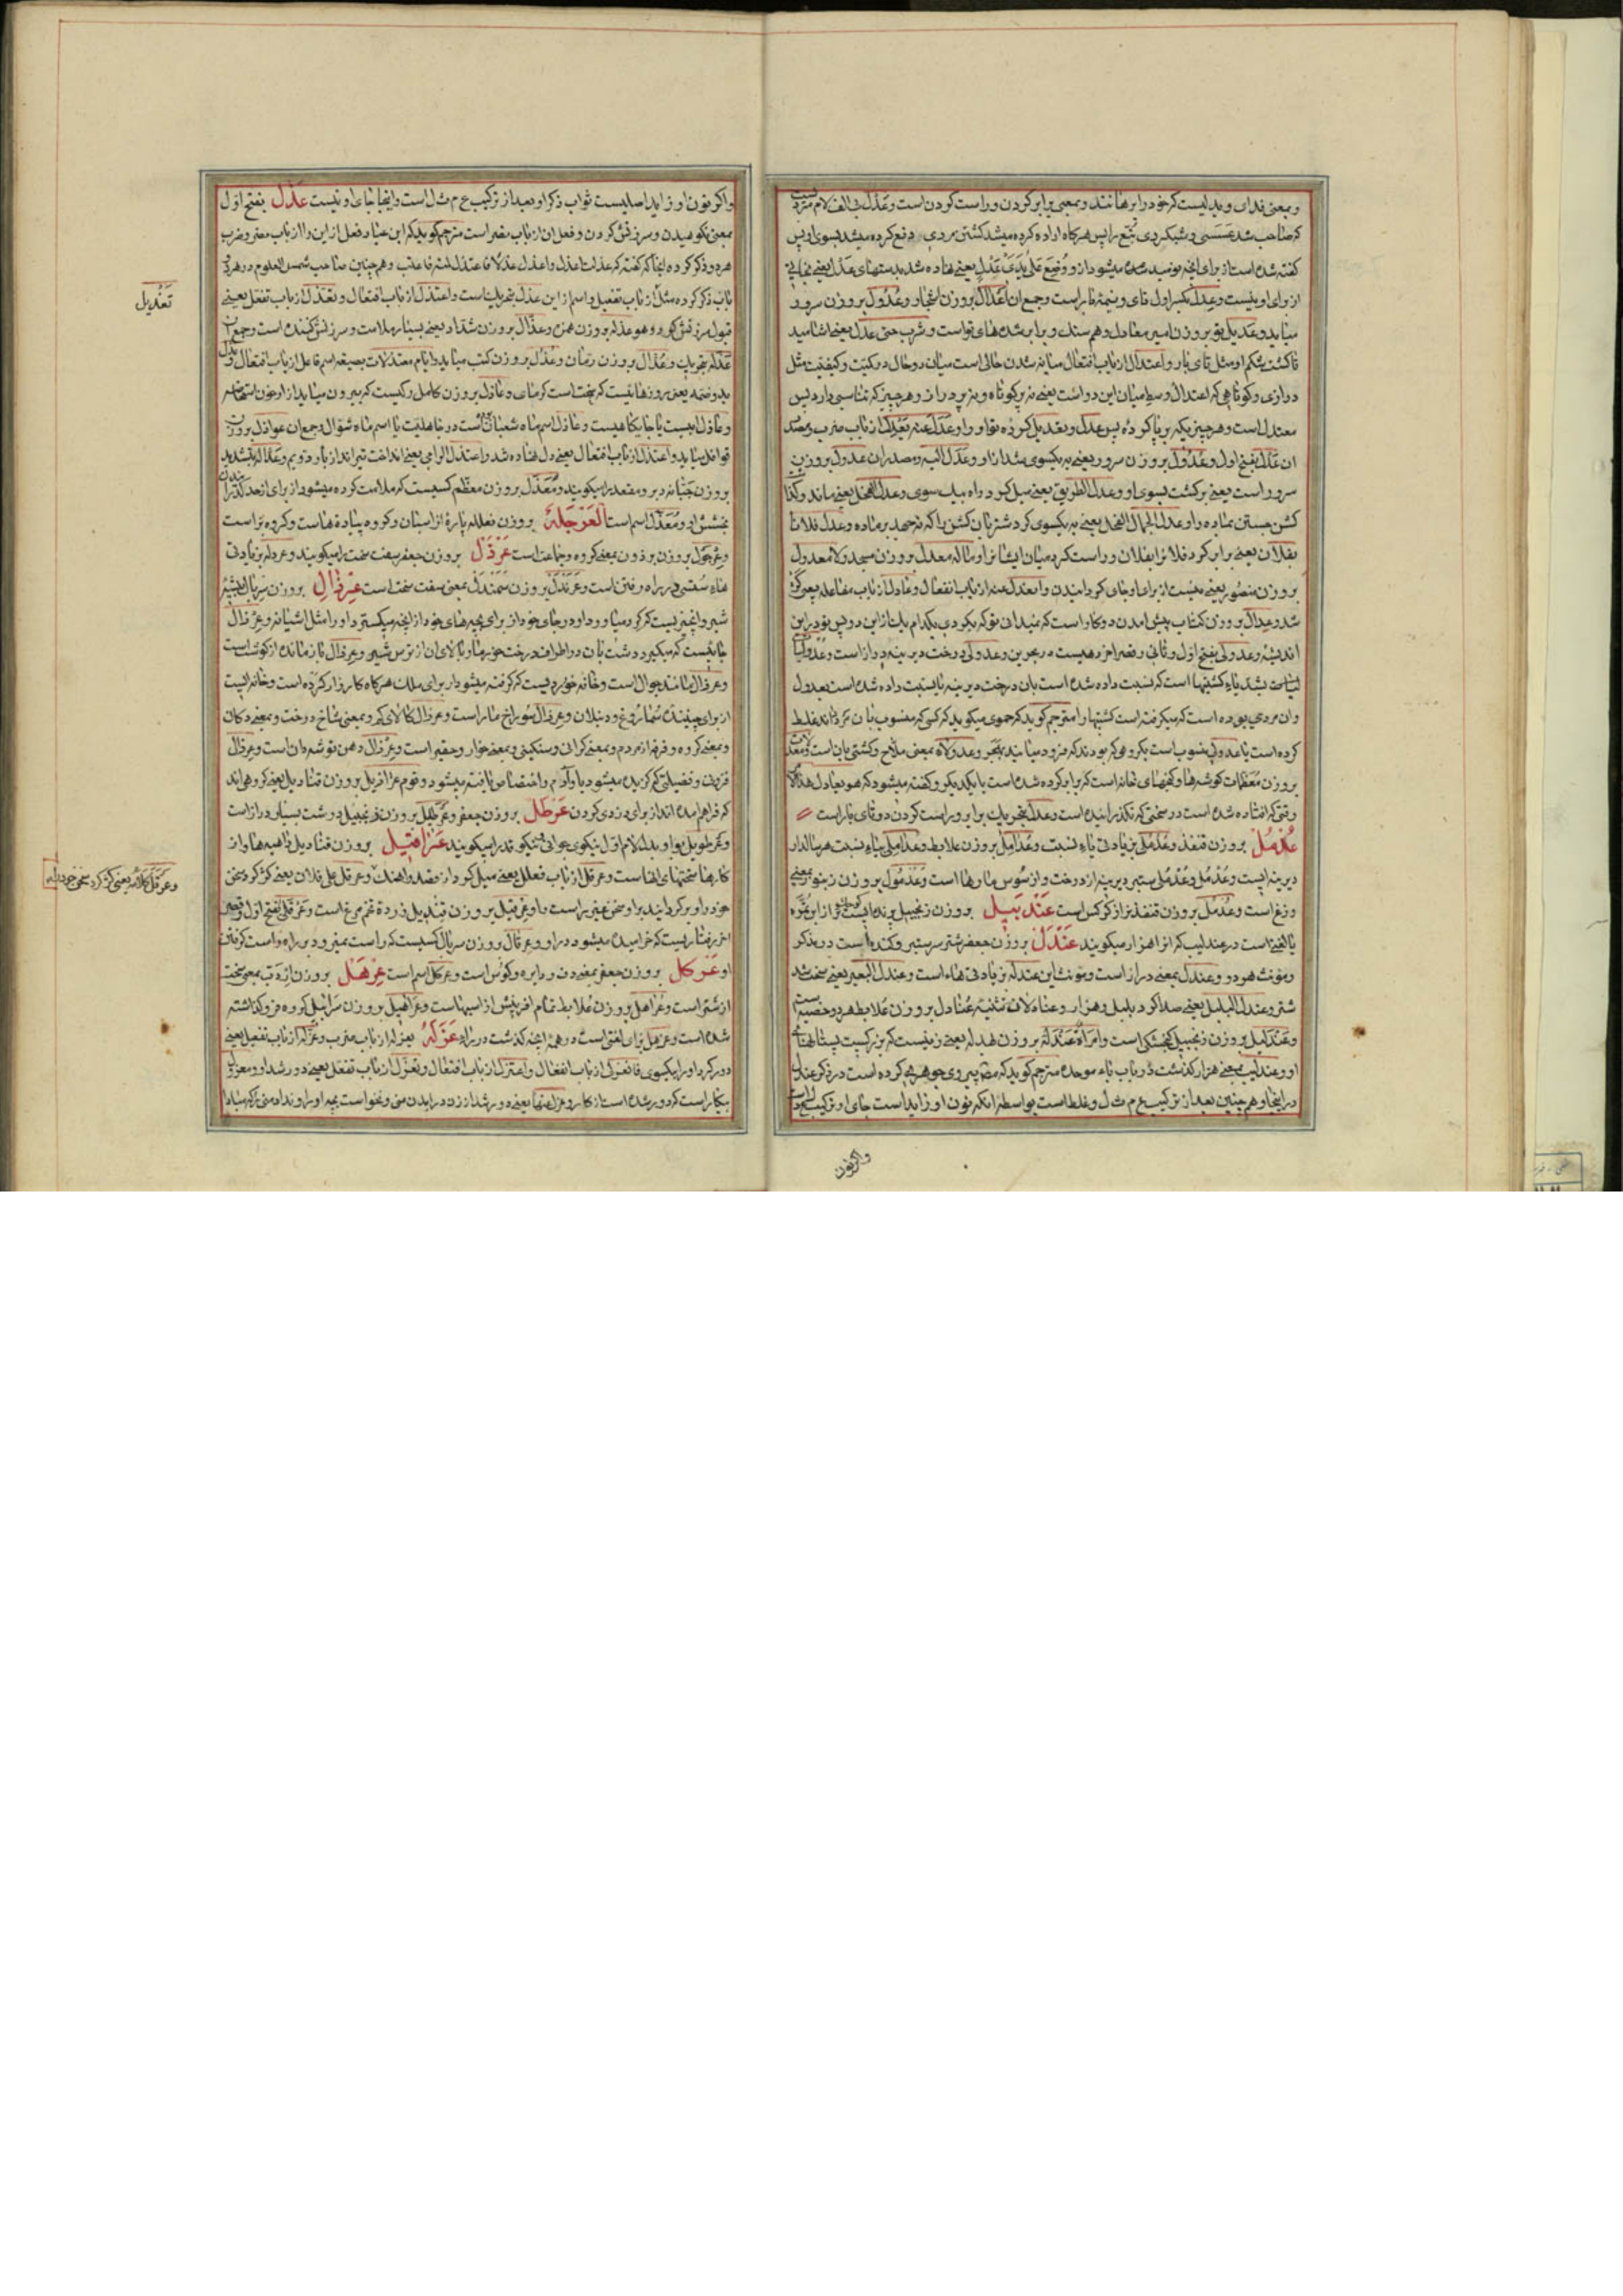 و بمعنی فدای و بدلیست که خود را برهانند و بمعنی برابر کردن و راست کردن است و عَدْل بی الف لام مردیست
که صاحب شد عسسی و شبکردی تُبّع را پس هرکاه اراده کرده میشد کشتن مردی دفع کرده میشد بسوی او پس
کفته شده است از برای انچه نومید شده میشود از و وُضِعَ عَلی یَدَیْ عَدْلٍ یعنی نهاده شد بدستهای عدل یعنی
از برای او نیست و عِدل بکسر اول تای و نیمه بار است و جمع آن اَعْدال بروزن اشجار و عُدُول بروزن سرور
میاید و عدیل بروزن امیر معادل و هم سنک و برابر شده های تو است و شرب حتی عدل یعنی اشامید
تا کشت شکم او مثل تای بار و اعتدال از باب افتعال میانه شدن حالی است میان دو حال در کمیّت و کیفیّت مثل
درازی و کوتاهی که اعتدال وسط میان این دو است یعنی نه پر کوتاه و نه پر دراز و هر چیز که تناسبی دارد پس
معتدل است و هر چیزی که بر پا کردهٔ پس عدل و تعدیل کردهٔ تو او را و عَدَلَ عنه یَعْدِل از باب ضرب و مصدر
ان عَدْل بفتح اول و عُدُول بروزن سرور یعنی به یکسوی شد از او و عدل الیه و مصدر ان عدول بروزن
سرور است یعنی برکشت بسوی او و عدل الطریق یعنی میل کرد راه بیک سوی و عدل الفحل یعنی ماند و کذا
کشن جستن بماده را و عدل الجمّال الفحل یعنی به یکسوی کرد شتربان کشن را که نه جهد بر ماده و عدل فلانا
بفلان یعنی برابر کرد فلان را بفلان و راست کرد میان ایشان را و ماله معدل بروزن مسجد و لا معدول
بروزن منصور یعنی نیست از برای او جای کردانیدن و انعدل عنه از باب انفعال و عادل از باب مفاعله یعنی کژ
شد و عِدال بروزن کتاب پیش امدن دو کار است که نمیدانی تو که بکردی بکدام یک از این دو پس تو در این
اندیشهٔ و عدولی بفتح اول و ثانی و قصر اخر دهیست در بحرین و عدولی درخت دیرینه دراز است و
وان مردی بوده است که میکرفته است کشتیها را مترجم کوید که جوهری میکوید که کسی که منسوب بان کرداند غلط
کرده است یا عدولی منسوب است بکروهی که بودند که فرود میایند بهجر و عدولاة بمعنی ملاح و کشتی بان است
بروزن معظمات کوشه ها و کنجهای خانه است که برابر کرده شده است با یکدیکر و کفته میشود که هو یعادل هذا
وقتی که افتاده شده است در سختی که نکذرانیده است و عدل بتحریک برابر و راست کردن دو تای بار است
عُدْمُل بروزن قنفذ و عُدْمُلی بزیادتی یاء نسبت و عُدامِل بروزن علابط و عدامِلی بیاء نسبت هر سالدار
دیرینه ایست و عُدْمُل و عُدْمُلی ستبر دیرینه از درخت و از سوس مارها است و عُدْمُول بروزن زنبور بمعنی
وزغ است و عُدْمُل بروزن قنفذ نر از کرکس است عَنْدَبیل بروزن زنجبیل پرنده ایست
یا لغتی است در عندلیب که انرا هزار میکویند عَنْدَل بروزن جعفر شتر سر ستبر و کنده است در مذکر
و مونث هر دو و عندل بمعنی دراز است و مونث این عندله بزیادتی هاء است و عندل البعیر یعنی سخت شد
شتر و عندل البلبل یعنی صدا کرد بلبل و هزار و عنادلان تثنیه عُنادِل بروزن عُلابط هر دو خصیه است
و عندلیل بروزن زنجبیل کنجشکی است و امراة عندلة بروزن هدله یعنی زنیست که بزرکست پستانهای
او و عندلیب بمعنی هزار کذشت در باب باء موحده مترجم کوید که مصر پیروی جوهری کرده است در ذکر عندل
در اینجا و همچنین بعد از ترکیب ع م ث ل و غلط است بواسطه انکه نون او زاید است جای او ترکیب
واکر نون
واکر نون او زاید اصلیست ثواب ذکر او بعد از ترکیب ع م ث ل است و اینجا جای او نیست عَذْل بفتح اول
بمعنی نکوهیدن و سرزنش کردن و فعل ان از باب نصر است مترجم کوید که این عباد فعل از این را از باب نصر و ضرب
هر دو ذکر کرده انجا که کفته که عذلت اعذل و اعذل عذلا فاعتذل لمته فاعتب و همچنین صاحب شمس العلوم در هر دو
باب ذکر کرده مثل از باب تفعیل و اسم از این عَذَل بتحریک است و اعتذل از باب افتعال و تعذّل از باب تفعل یعنی
تَعْذیل
قبول سرزنش کرد و هو عذلة بروزن همزه و عذّال بروزن شدّاد یعنی بسیار ملامت و سرزنش کننده است و جمع ان
عَذَلَه بتحریک و عُذّال بروزن رمّان و عُذّل بروزن کتب میاید و ایام معتذلات بصیغه اسم فاعل از باب افتعال
بدو ضمه یعنی روزهائیست که سخت است کرمای و عاذل بروزن کامل رکیست که بیرون میاید از او خون استحاضه
و عاذل اسبیست یا جایکاهیست و عاذل اسم ماه شعبان است در جاهلیّت یا اسم ماه شوّال و جمع ان عواذل بروزن
قوافل میاید و اعتذل از باب افتعال یعنی دل نهاده شد و اعتذل الرامی یعنی انداخت تیرانداز بار دویم و عذّاله بتشدید
بروزن جبّانه دبر و مقعد را میکویند و مُعَذَّل بروزن معظّم کسیست که ملامت کرده میشود از برای از حد کذراندن
بخشش او و مُعَذَّل اسم است العَرْجَلة بروزن فعلله پارهٔ از اسبان و کروه پیاده هاست و کروه بز است
و عِرْجَوْل بروزن برذون بمعنی کروه و جماعت است عَرْدَل بروزن جعفر سفت سخت را میکویند و عردله بزیادتی
هاء سستی در راه رفتن است و عَرَنْدَل بروزن سَمَنْدَل بمعنی سفت سخت است عِرْزال بروزن سربال بیشهٔ
شیر و انچیزیست که کرد میاورد او در جای خود از برای بچه های خود از انچه میکسترد او را مثل اشیانه و عرزال
جایئیست که میکیرد دشت بان در اطراف درخت خرما و بالای ان از ترس شیر و عرزال باز مانده از کوشت است
و عرزال مانند جوال است و خانه خوردیست که کرفته میشود از برای ملک هرکاه کارزار کرده است و خانه ایست
از برای چینندهٔ سُماروغ و دنبلان و عرزال سوراخ مار است و عرزال کالای کم و بمعنی شاخ درخت و بمعنی دکان
و بمعنی کروه و فرقه از مردم و بمعنی کرانی و سنکینی و بمعنی خوار و حقیر است و عِرزال دهن توشه دان است و عِرزال
فزونی و فضیلتی که کزیده میشود باو و اختصاص یافته میشود و قوم عَرازیل بروزن قنادیل یعنی کروهی اند
که فراهم امده اند از برای دزدی کردن عَرْطَل بروزن جعفر و عَرْطَلیل بروزن زنجبیل درشت بسیار دراز است
و عرطویل بواو بدل لام اول نیکوی جوانی و نیکو قد را میکویند عَراقیل بروزن قنادیل داهیه ها و از
کارها سختهای انها است و عرقل از باب فعلل یعنی میل کرد از قصد و اهنک و عرقل علی فلان یعنی کژ کرد سخن
خود را و برکردانید بر او سخن غیر راست را و عرقیل بروزن قندیل زردهٔ تخم مرغ است و عَرْقَلی بفتح اول و قصر
و عَرْقَلَ کلامه یعنی کژ کرد سخن خود را
اخر رفتاریست که خرامیده میشود در او و عرقال بروزن سربال کسیست که راست نمیرود بر راه راست کرفتن
او عَرْکَل بروزن جعفر بمعنی دف و دایره و کوس است و عرکل اسم است عِرْهَل بروزن اِرْدَب بمعنی سخت
از شتر است و عُراهل بروزن عُلابط تمام افرینش از اسبهاست و عَراهیل بروزن سَرابیل کروه فرو کذاشته
شده است و عزهل بزای لغتی است در همه انچه کذشت در راء عَزَلَهُ یعزله از باب ضرب و عزّله از باب تفعیل یعنی
دور کرد او را بیکسوی فانعزل از باب انفعال و اعتزل از باب افتعال و تعزّل از باب تفعّل یعنی دور شد او و معزول
بیکار است که دور شده است از کار و عزل عنها یعنی دور شد از زن در اندن منی و نخواست بچه او را و نداد منی